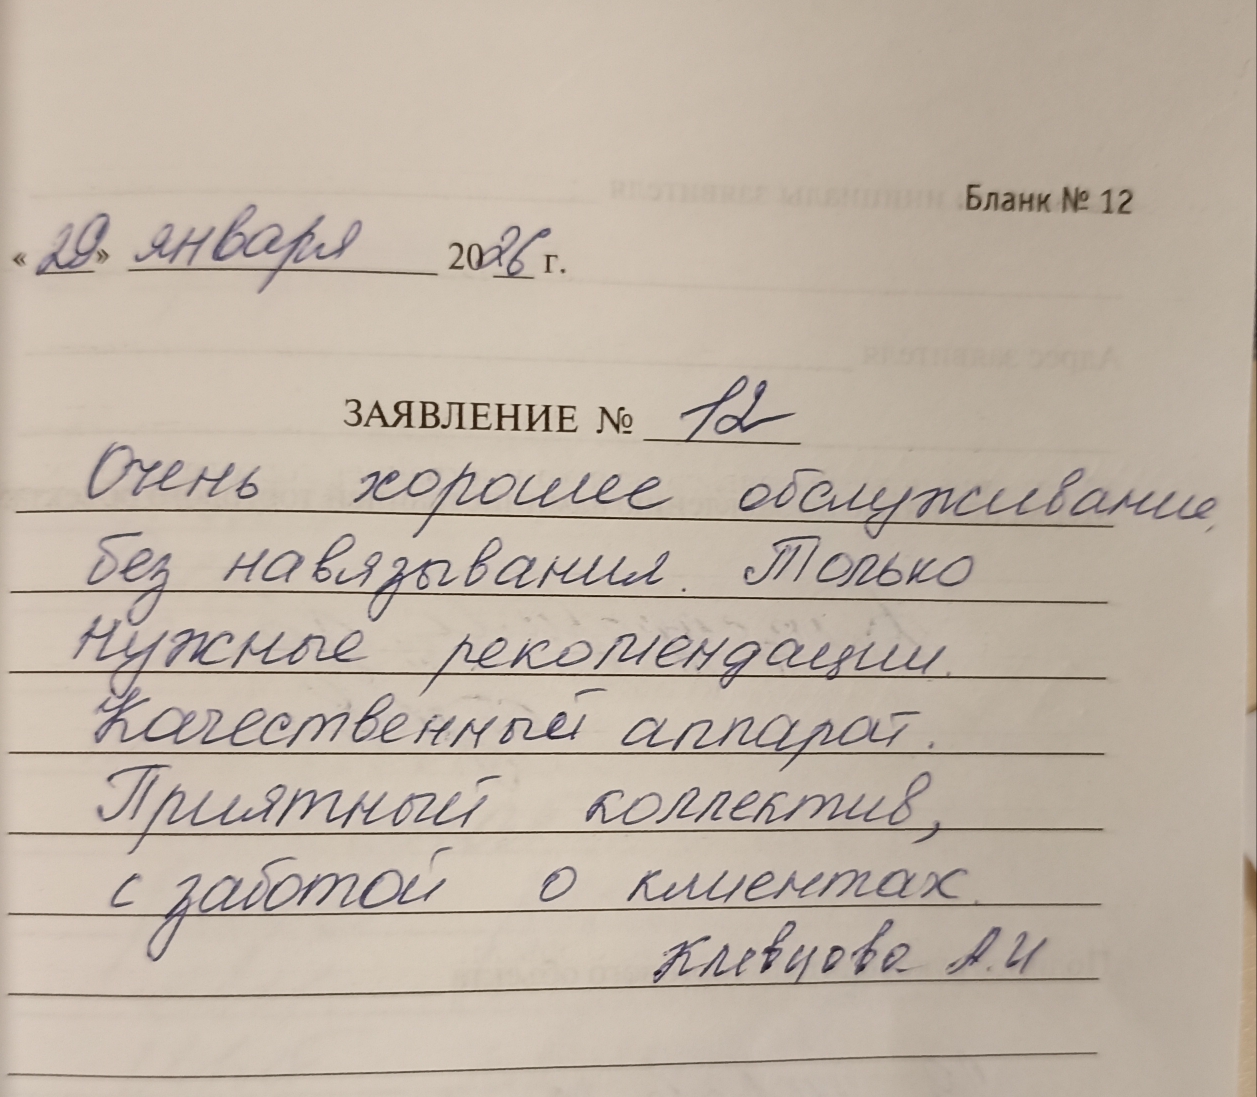 Бланк № 12
« 29 » января 2026 г.
ЗАЯВЛЕНИЕ № 12
Очень хорошее обслуживание,
без навязывания. Только
нужные рекомендации.
Качественный аппарат.
Приятный коллектив,
с заботой о клиентах.
Клевцова А.И